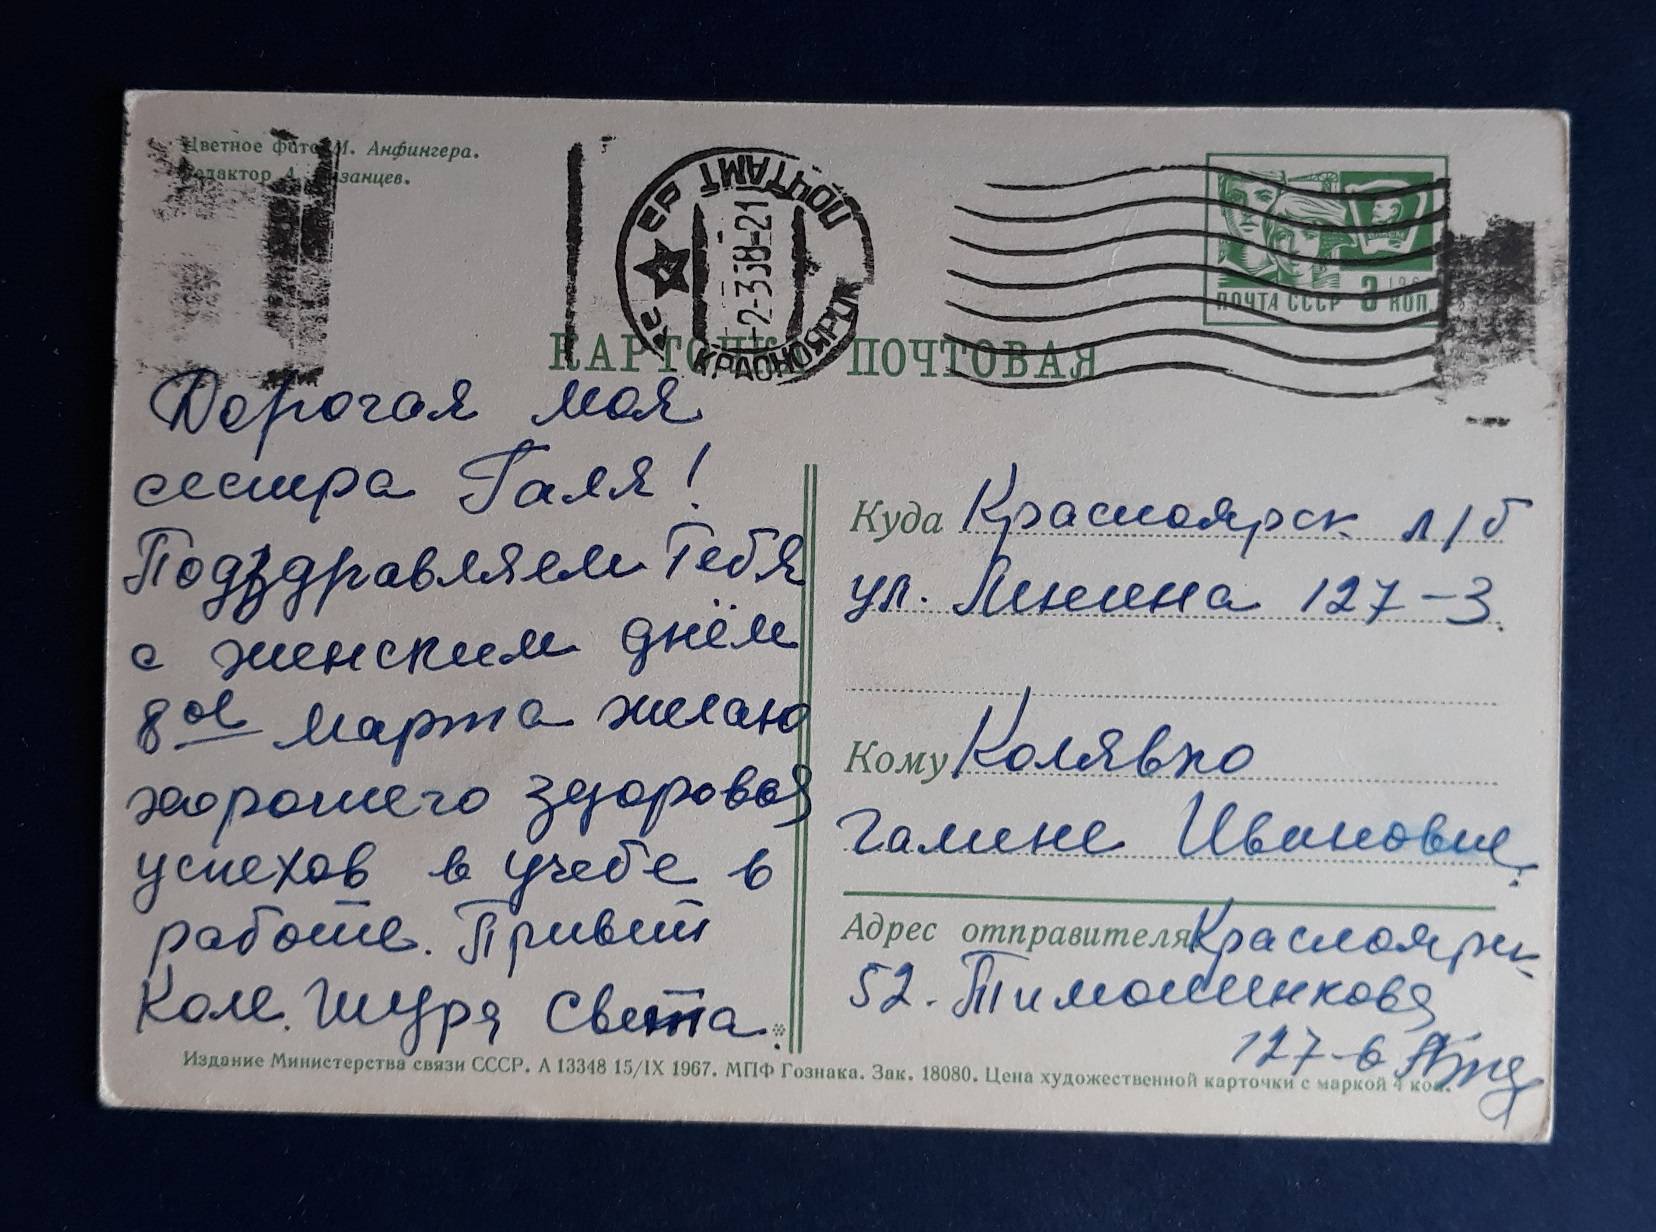 Цветное фото И. Анфингера.
Редактор А. занцев.
СССР ПОЧТАМТ
-2-368-21
КРАСНОЯРСК
ПОЧТА СССР 3 КОП.
КАРТОЧКА ПОЧТОВАЯ
Дорогая моя
сестра Галя!
Подздравляем Тебя
с женским днём
8ое марта желаю
хорошего здоровья
успехов в учебе в
работе. Привет
Коле. Шура Света.
Куда Красноярск л/б
ул. Ленина 127-3.
Кому Колявко
Галине Ивановне.
Адрес отправителя Красноярск
52. Тимошенкова
127-6
Издание Министерства связи СССР. А 13348 15/IX 1967. МПФ Гознака. Зак. 18080. Цена художественной карточки с маркой 4 коп.